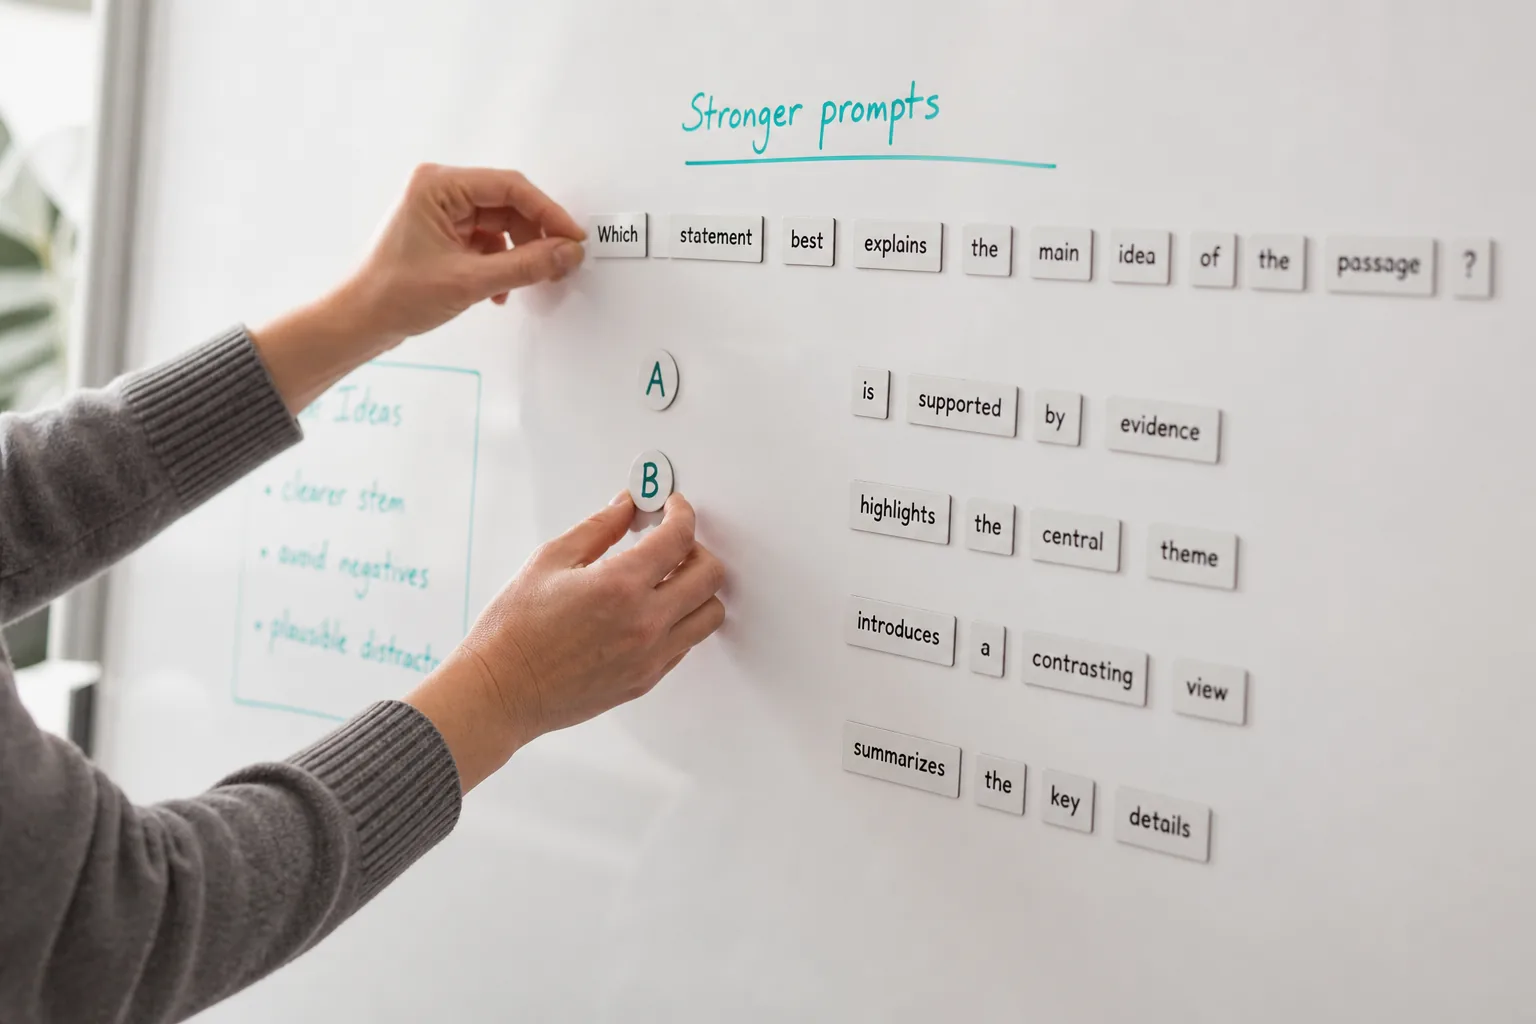 Stronger prompts
Which statement best explains the main idea of the passage ?
A
is supported by evidence
B
highlights the central theme
introduces a contrasting view
summarizes the key details
Ideas
• clearer stem
• avoid negatives
• plausible